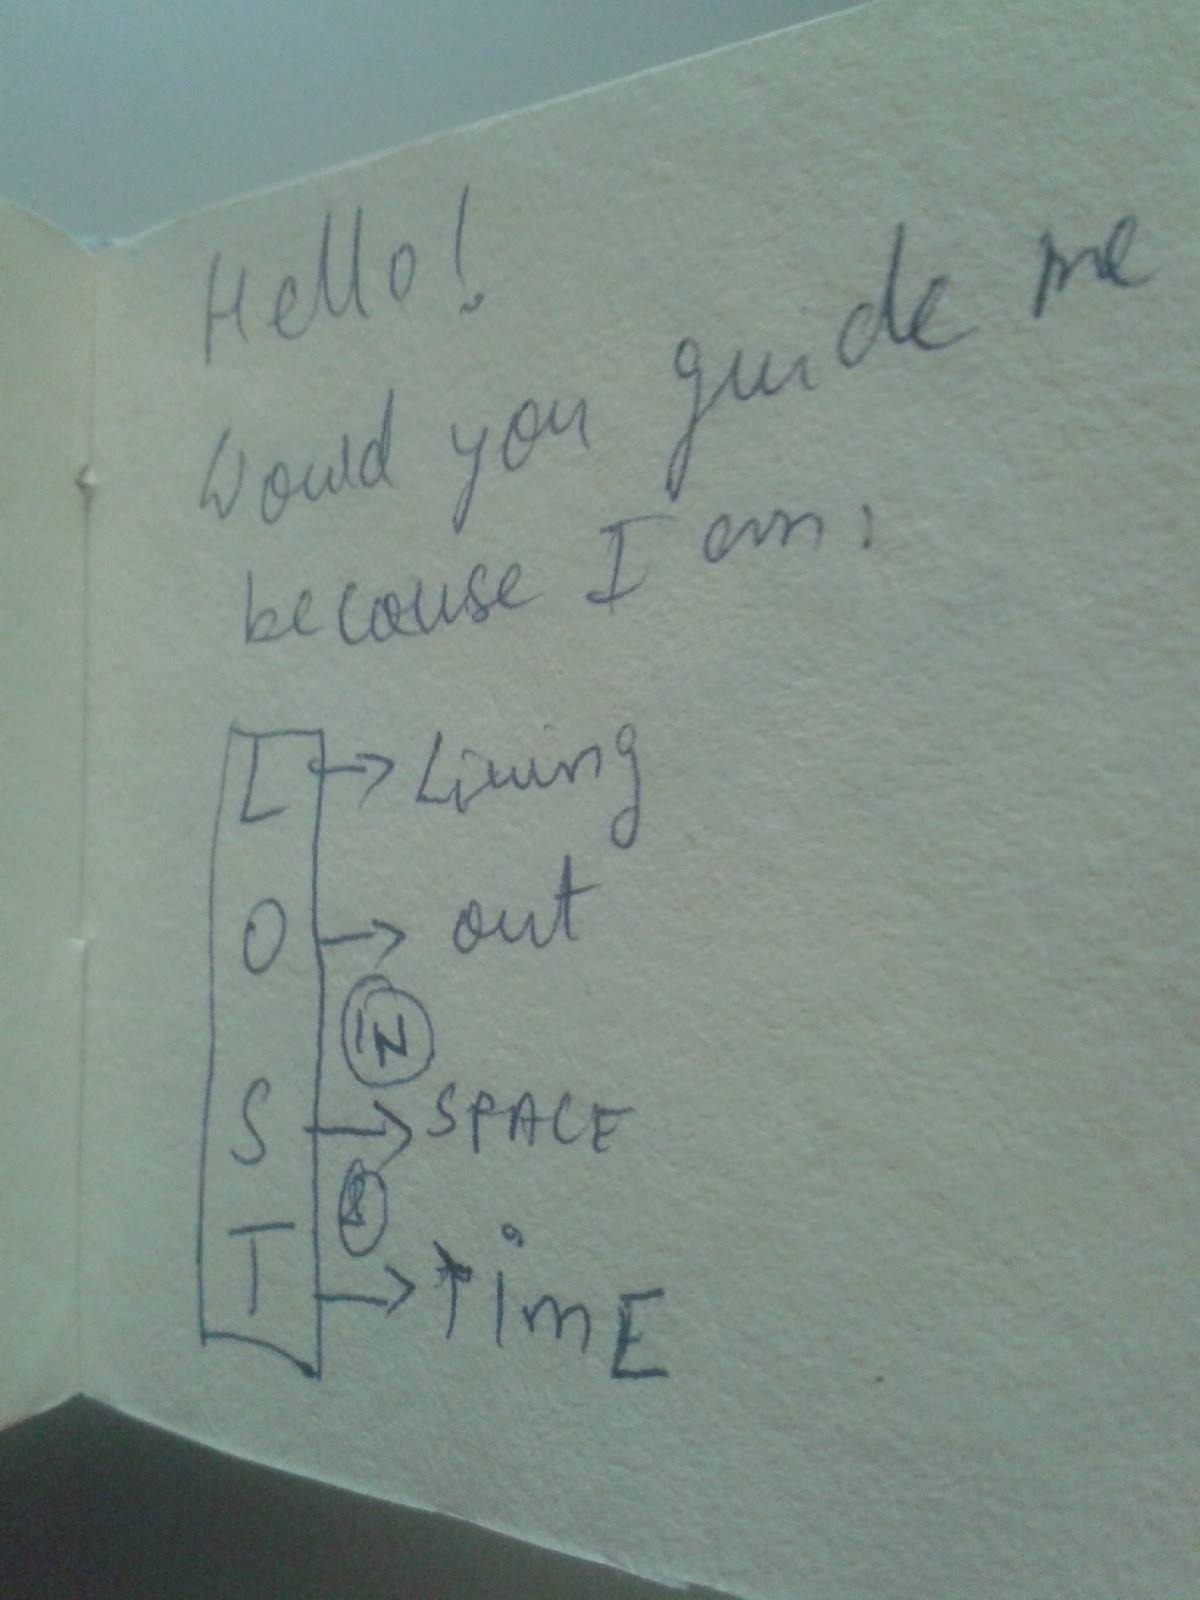 Hello!
Would you guide me
because I am:
L → Living
O → out
IN
S → SPACE
&
T → TimE